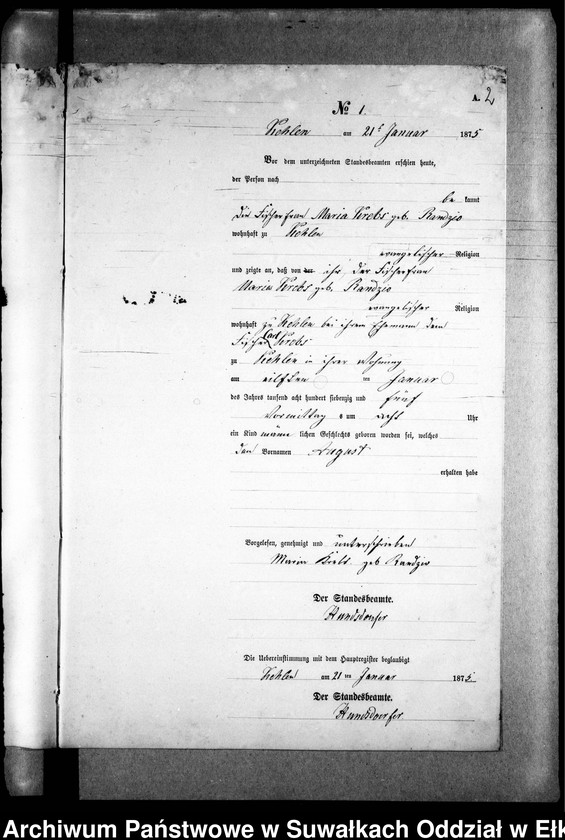 A. 2
No 1.
Kehlen am 21t Januar 1875
Vor dem unterzeichneten Standesbeamten erschien heute,
der Person nach
be kannt
die Fischerfrau Maria Krebs geb. Randzio
wohnhaft zu Kehlen
evangelischer Religion
und zeigte an, daß von der ihr der Fischerfrau
Maria Krebs geb. Randzio
evangelischer Religion
wohnhaft zu Kehlen bei ihrem Ehemann dem
Fischer Carl Krebs
zu Kehlen in ihrer Wohnung
am eilften ten Januar
des Jahres tausend acht hundert siebenzig und fünf
Vormittag s um acht Uhr
ein Kind männ lichen Geschlechts geboren worden sei, welches
den Vornamen August
erhalten habe
Vorgelesen, genehmigt und unterschrieben
Maria Krebs geb Randzio
Der Standesbeamte.
Die Uebereinstimmung mit dem Hauptregister beglaubigt
Kehlen am 21 ten Januar 1875
Der Standesbeamte.
Archiwum Państwowe w Suwałkach Oddział w Ełk